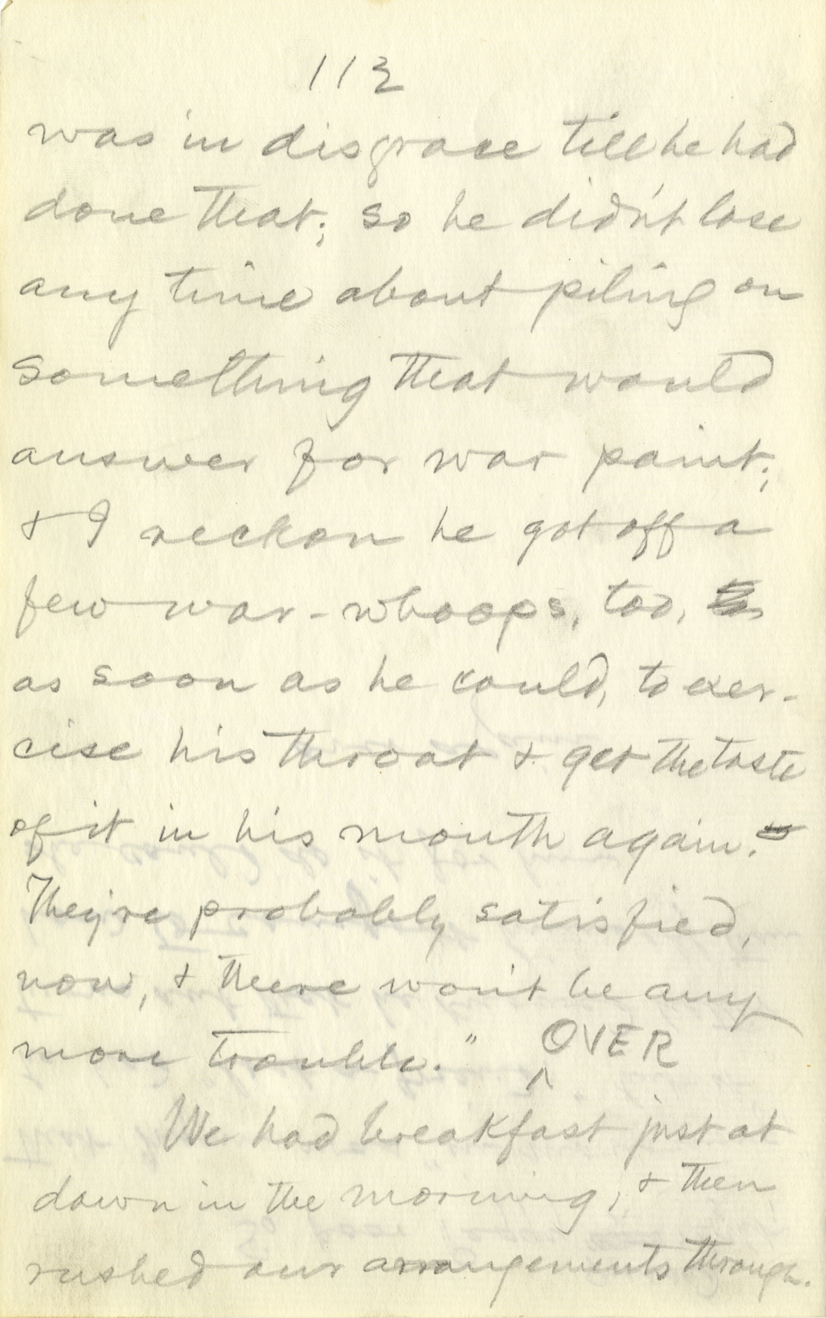 113
was in disgrace till he had
done that; so he didn't lose
any time about piling on
something that would
answer for war paint;
& I reckon he got off a
few war-whoops, too,
as soon as he could, to exer-
cise his throat & get the taste
of it in his mouth again.
They're probably satisfied,
now, & there won't be any
more trouble."
^ OVER
We had breakfast just at
dawn in the morning, & then
rushed our arrangements through.